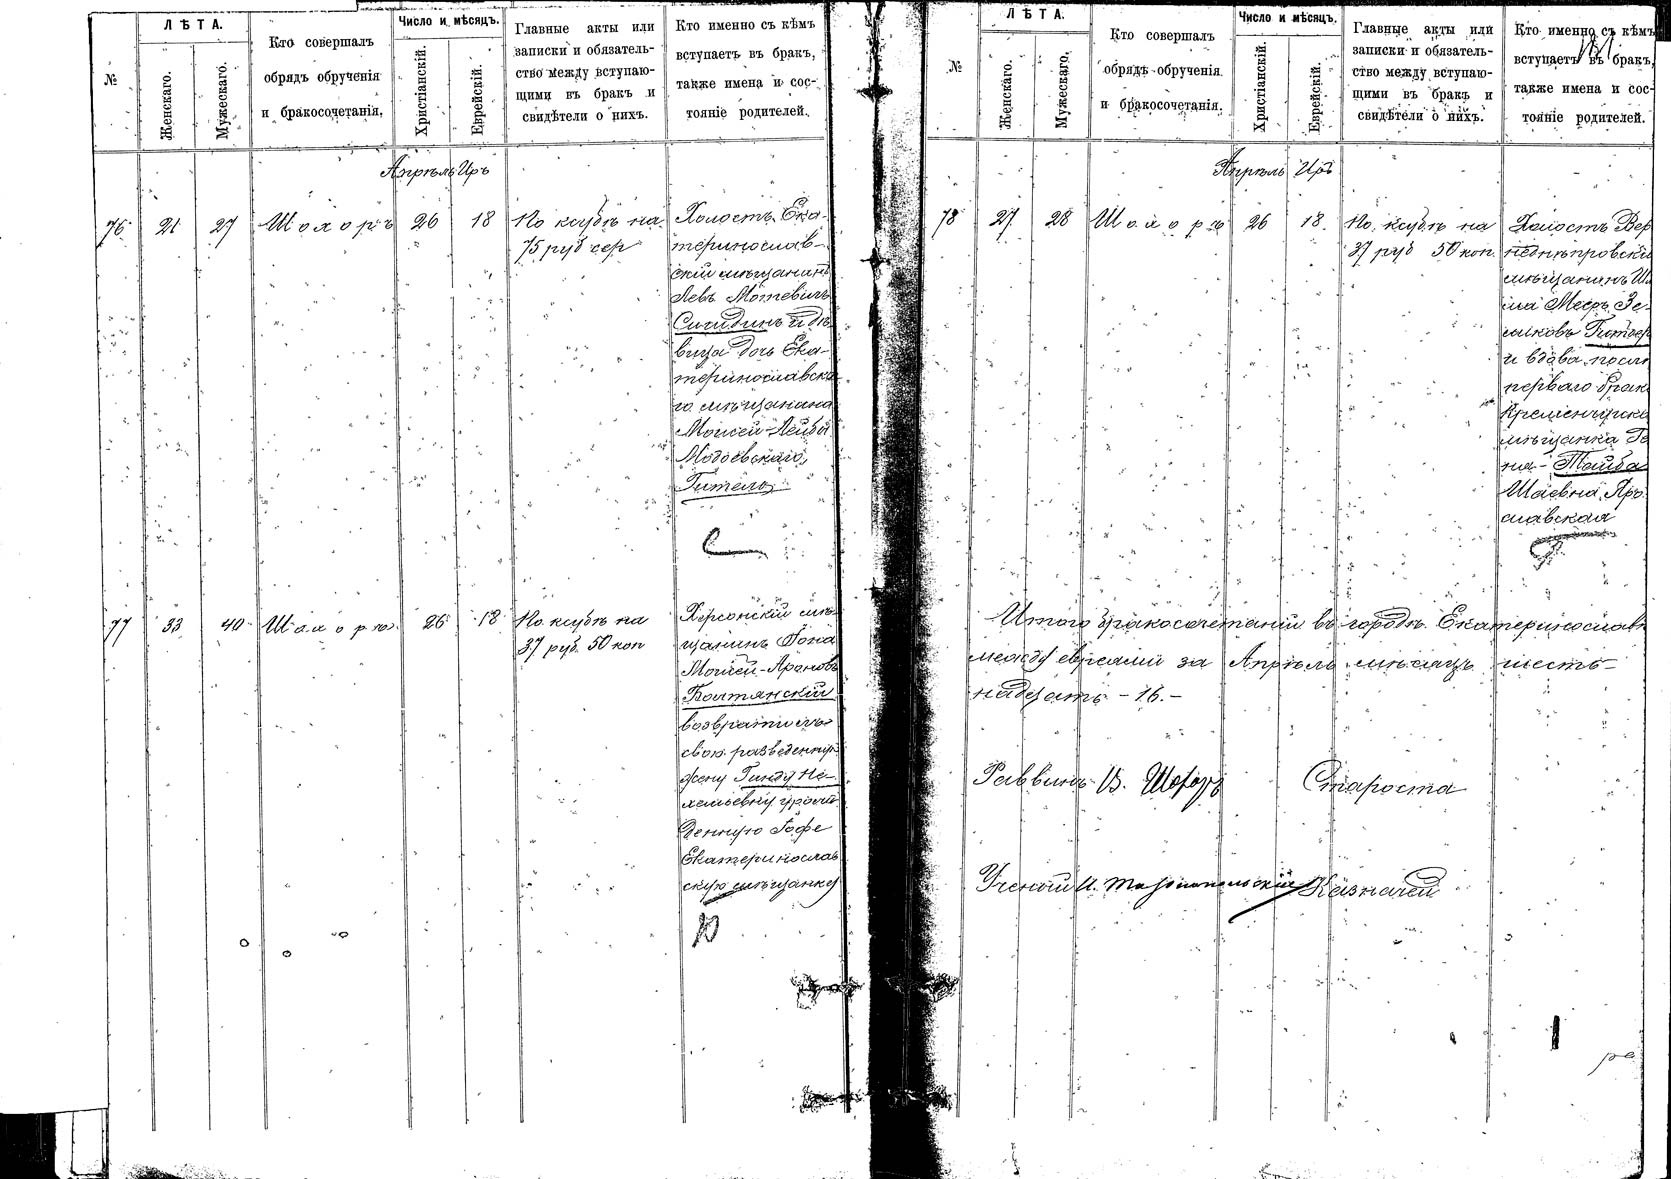 №
ЛѢТА.
Женскаго.
Мужескаго.
Кто совершалъ
обрядъ обрученія
и бракосочетанія.
Число и мѣсяцъ.
Христіанскій.
Еврейскій.
Главные акты или
записки и обязатель-
ство между вступаю-
щими въ бракъ и
свидѣтели о нихъ.
Кто именно съ кѣмъ
вступаетъ въ бракъ,
также имена и сос-
тояніе родителей.
Апрѣль Иръ
76 21 27 Шохоръ 26 18
По ксубѣ на
75 руб сер
Холостъ Ека-
теринослав-
скій мѣщанинъ
Левъ Мотевичъ
и дѣ-
вица дочь Ека-
теринославска
го мѣщанина
Моисей-Лейба
Гитель
77 33 40 Шохоръ 26 18
По ксубѣ на
37 руб. 50 коп
Херсонскій мѣ-
щанинъ
Моисей-Ароновъ
Болтянскій
возвратилъ
свою разведенную
жену Гинду Не-
урож
денную Гофе
Екатеринослав
скую мѣщанку
№
ЛѢТА.
Женскаго.
Мужескаго.
Кто совершалъ
обрядъ обрученія
и бракосочетанія.
Число и мѣсяцъ.
Христіанскій.
Еврейскій.
Главные акты или
записки и обязатель-
ство между вступаю-
щими въ бракъ и
свидѣтели о нихъ.
Кто именно съ кѣмъ
вступаетъ въ бракъ,
также имена и сос-
тояніе родителей.
Апрѣль Иръ
78 27 28 Шохоръ 26 18
По ксубѣ на
37 руб 50 коп.
Холостъ Вер
неднѣпровскі
мѣщанинъ
Мееръ Зе-
и вдова послѣ
перваго брак
Кременчугска
мѣщанка Ге
на-Тойба
Шаевна Яро
славская
Итого бракосочетаній въ городѣ Екатеринославѣ
между евреями за Апрѣль мѣсяцъ шесть-
надцать - 16. -
Раввинъ В. Шохоръ Староста
Ученый Казначей